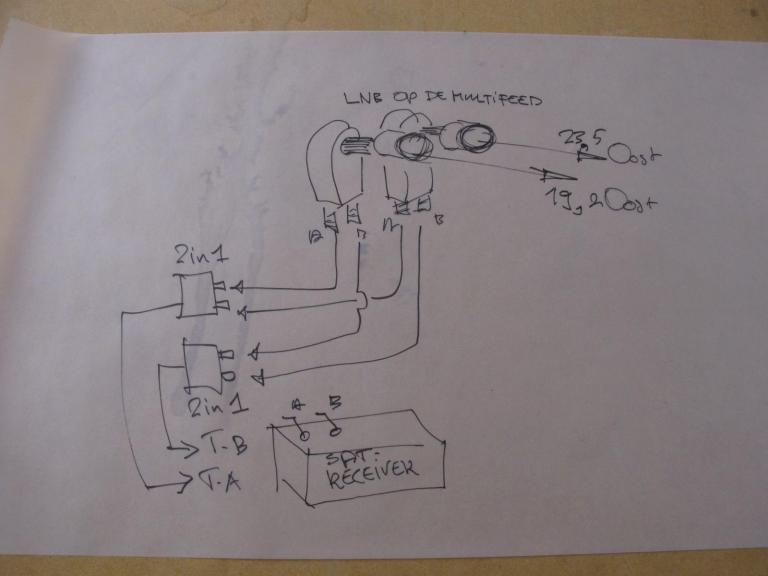 LNB OP DE MULTIFEED
23,5 Oost
19,2 Oost
A
B
A
B
2in1
2in1
T-B
T-A
A
B
SAT-
RECEIVER